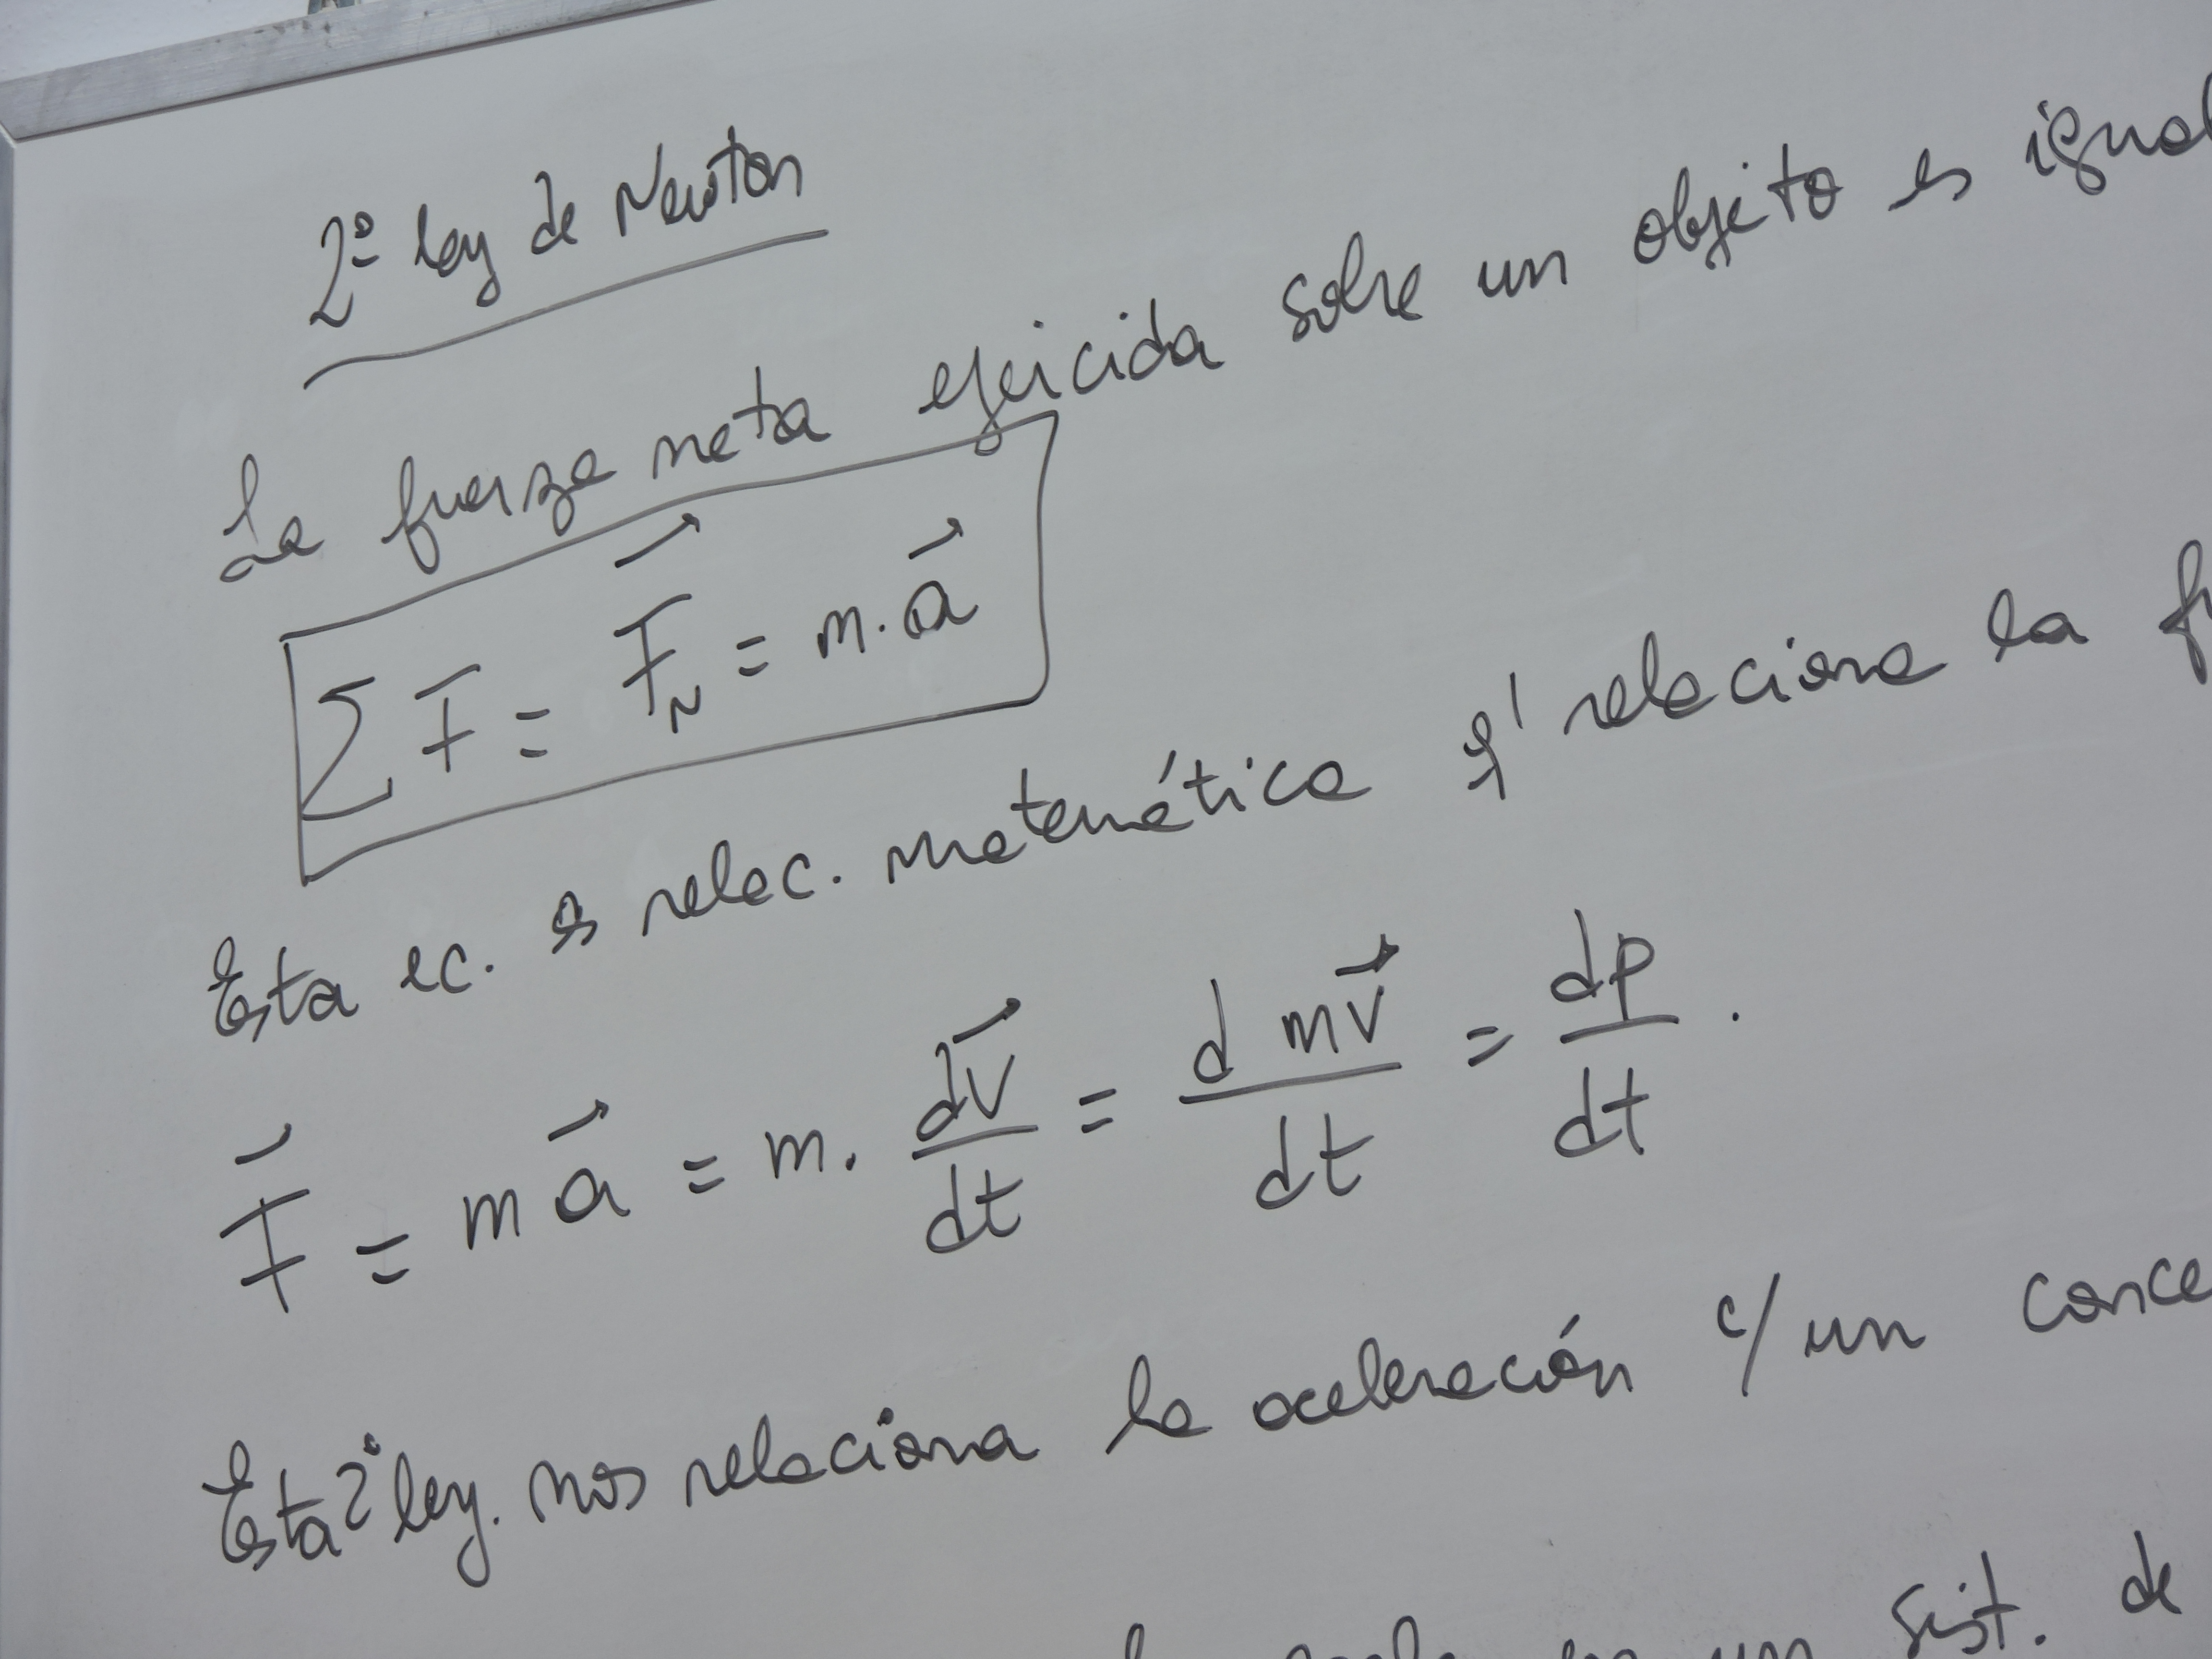 2º ley de Newton
La fuerza neta ejercida sobre un objeto es igual
∑ F̄ = F⃗_N = m. a⃗
Esta ec. es relac. matemática q' relaciona la
F⃗ = m a⃗ = m. dv⃗/dt = d mv⃗/dt = dp/dt .
Esta 2º ley. nos relaciona la aceleración c/ un
un sist. de